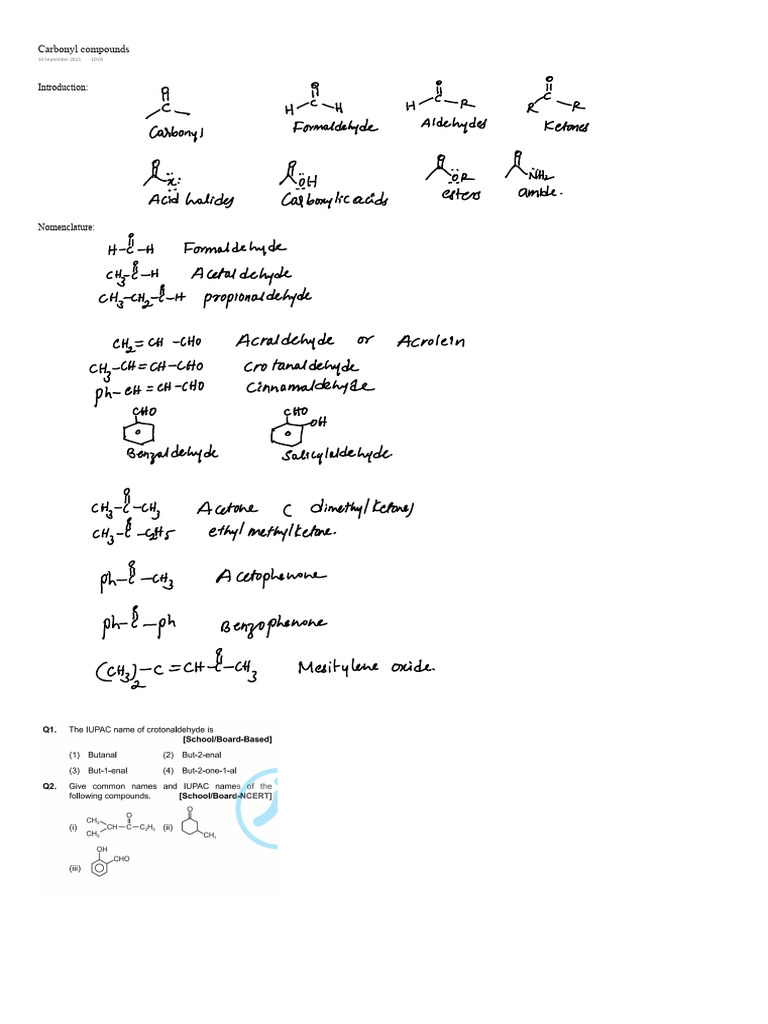 Carbonyl compounds
10 September 2023 10:05
Introduction:
O O O O
C H C H H C R R C R
Carbonyl Formaldehyde Aldehydes Ketones
O O O O
x: OH OR NH2
Acid halides Carboxylic acids esters amide.
Nomenclature:
O
H-C-H Formaldehyde
O
CH3-C-H Acetaldehyde
O
CH3-CH2-C-H propionaldehyde
CH2=CH-CHO Acraldehyde or Acrolein
CH3-CH=CH-CHO Crotanaldehyde
ph-CH=CH-CHO Cinnamaldehyde
CHO CHO
OH
Benzaldehyde Salicylaldehyde
O
CH3-C-CH3 Acetone ( dimethylketone)
O
CH3-C-C2H5 ethylmethylketone.
O
ph-C-CH3 Acetophenone
O
ph-C-ph Benzophenone
O
(CH3)2-C=CH-C-CH3 Mesitylene oxide.
Q1. The IUPAC name of crotonaldehyde is
[School/Board-Based]
(1) Butanal (2) But-2-enal
(3) But-1-enal (4) But-2-one-1-al
Q2. Give common names and IUPAC names of the
following compounds. [School/Board-NCERT]
O O
CH3
(i) CH-C-C2H5 (ii)
CH3 CH3
OH
CHO
(iii)